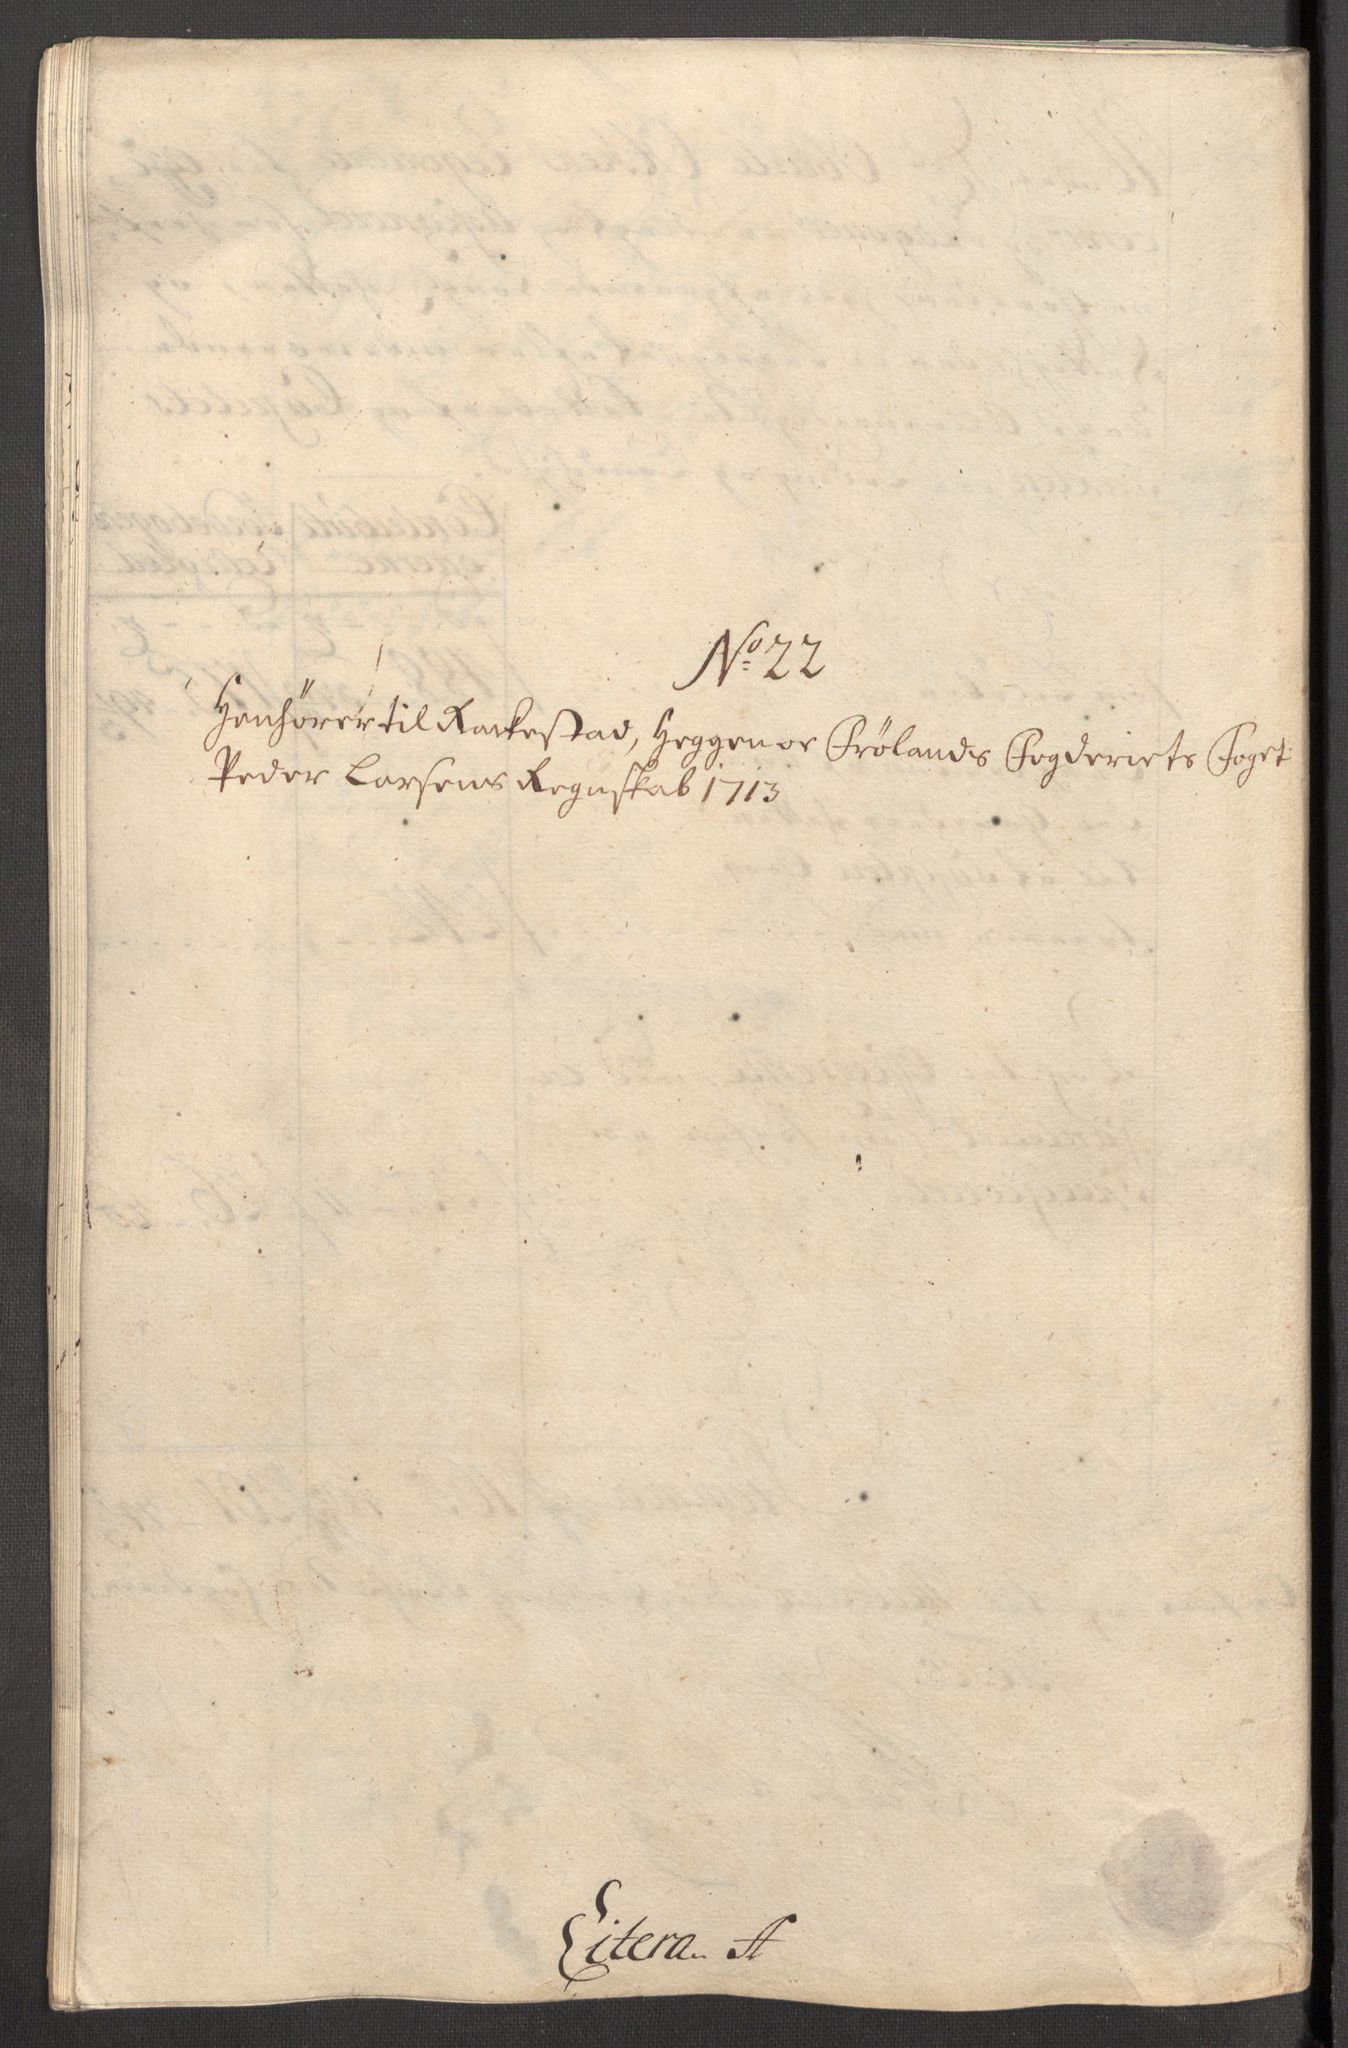 No 22
Henhörer til Rackestad, Heggen oc Frölands Fogderiets Foget
Peder Larsens Regnskab 1713
Litera. A